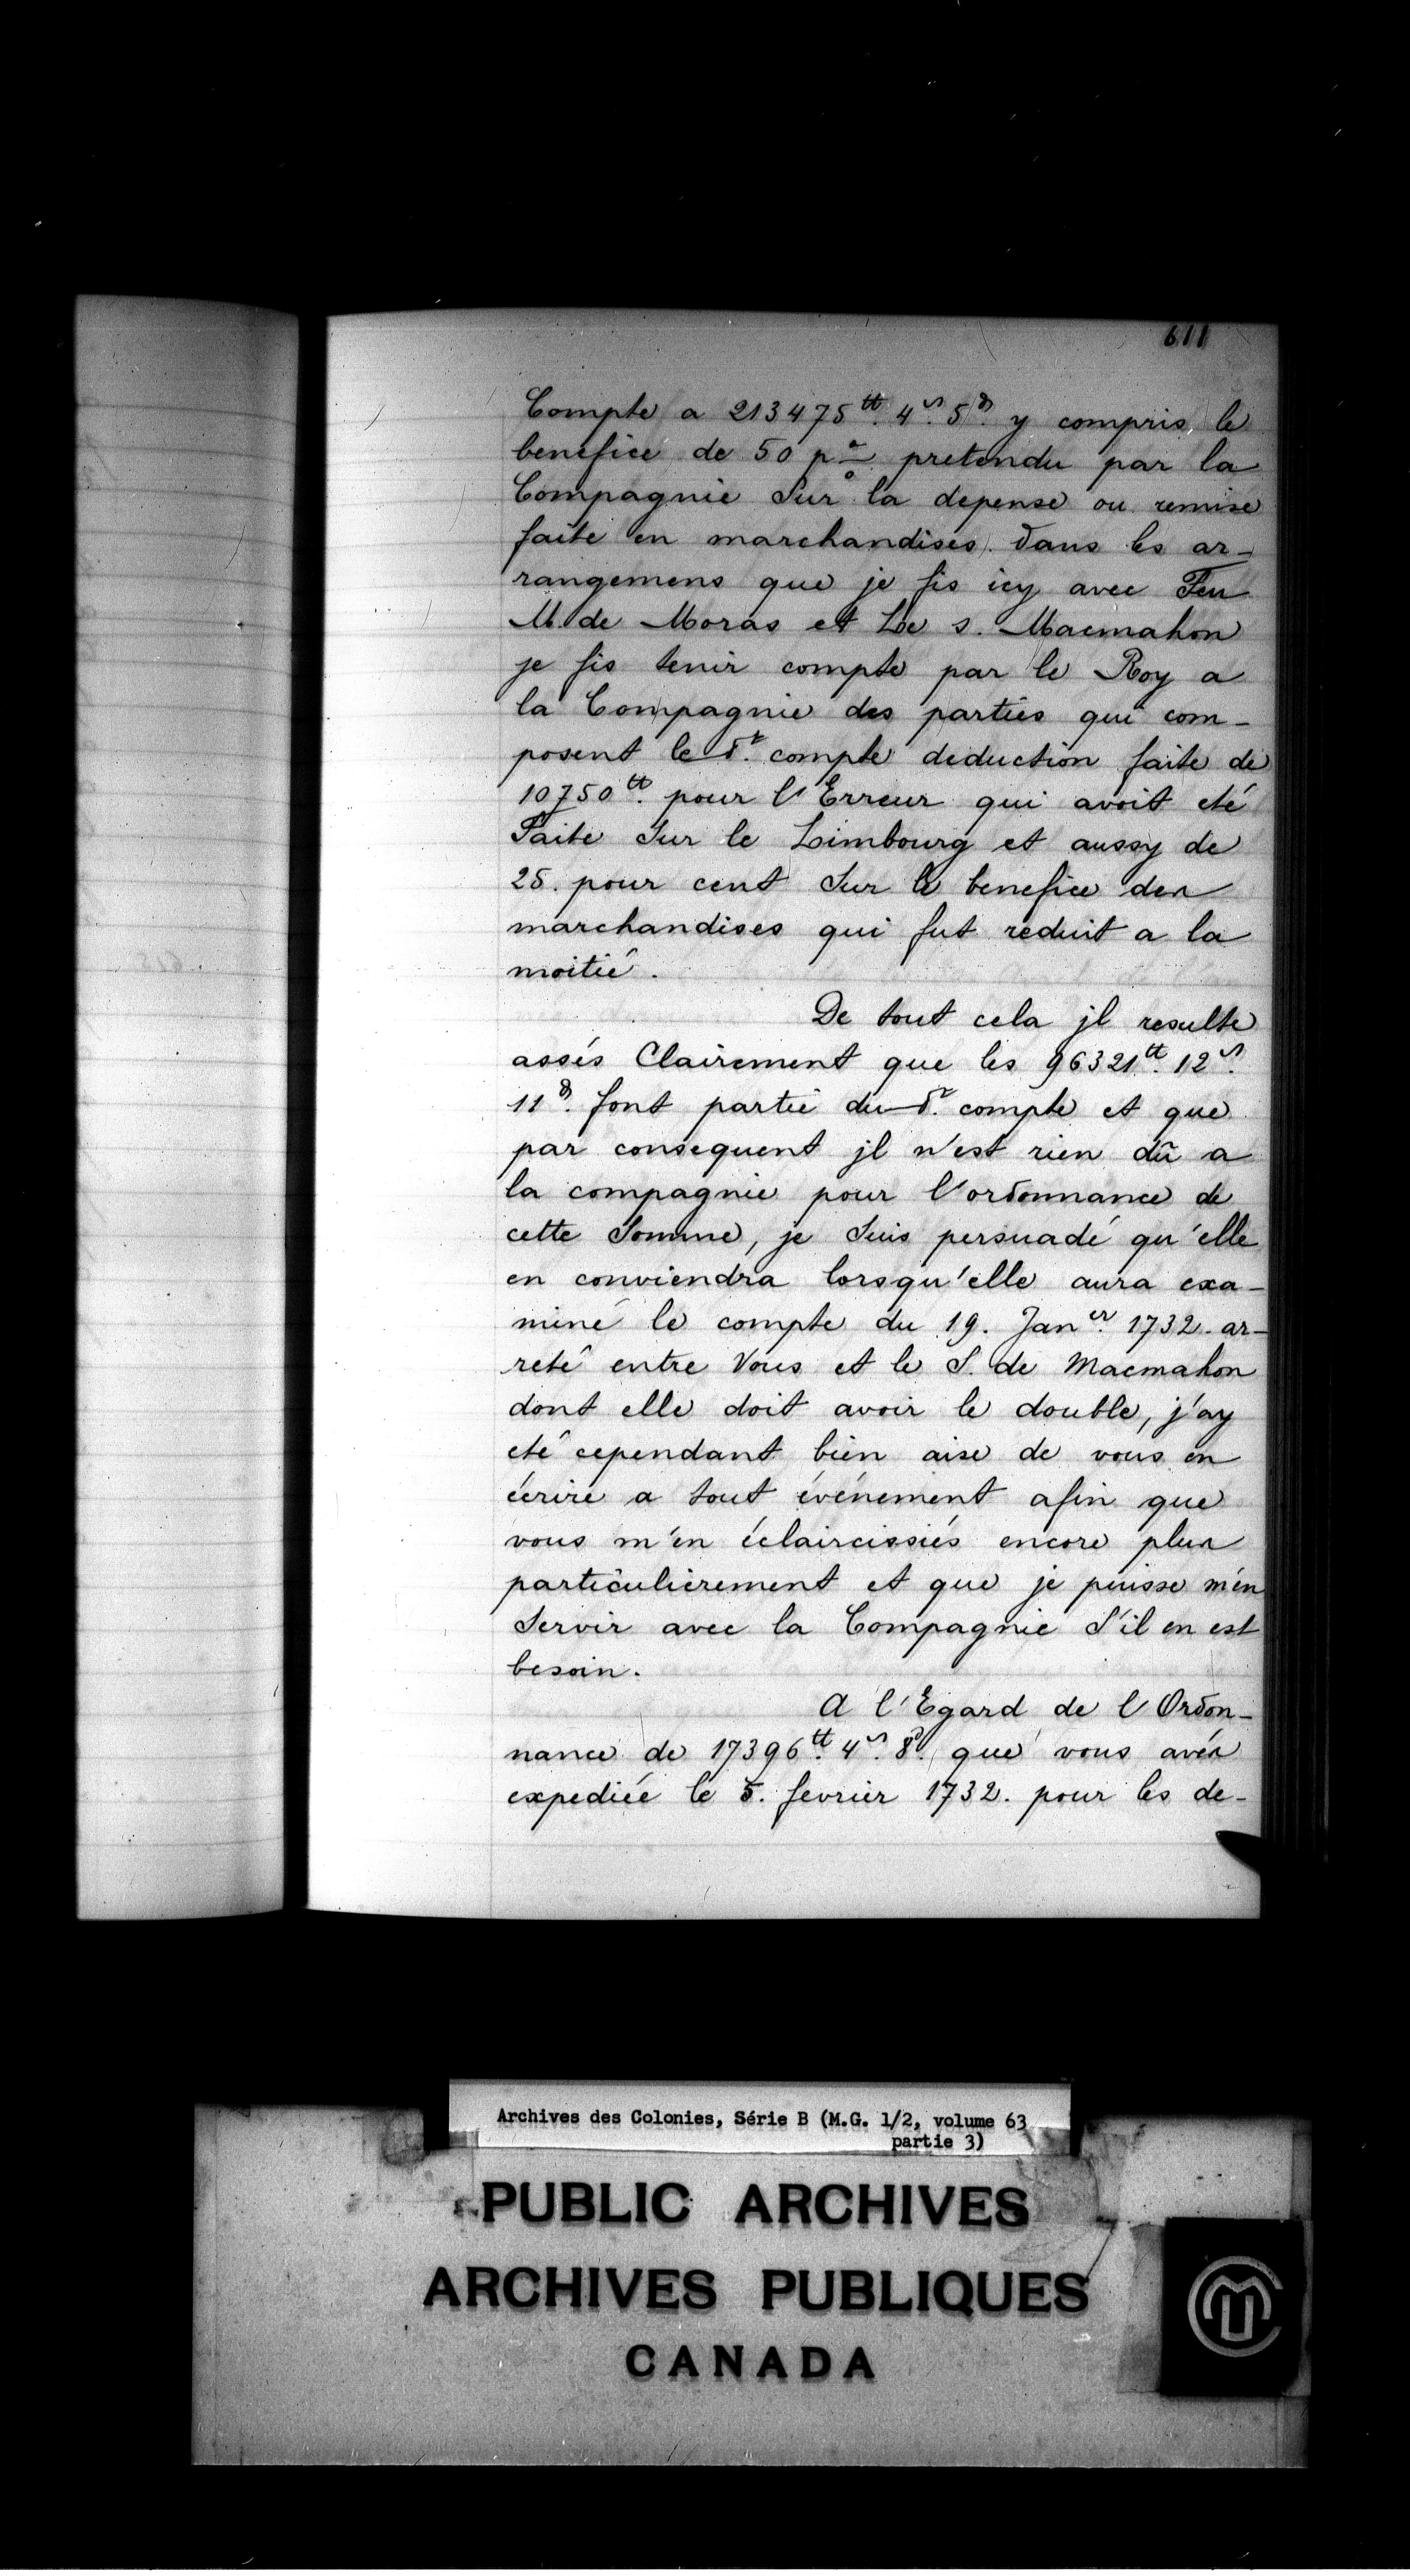 611
Compte a 213475tt. 4s. 5d. y compris le
benefice de 50 p% pretendu par la
Compagnie Sur la depense ou remise
faite en marchandises. Dans les ar-
rangemens que je fis icy avec Feu
M. de Moras et Le s. Macmahon
je fis tenir compte par le Roy a
la Compagnie des parties qui com-
posent le dt. compte deduction faite de
10750tt. pour l'Erreur qui avoit eté
Faite Sur le Limbourg et aussy de
25. pour cent Sur le benefice des
marchandises qui fut reduit a la
moitié.
De tout cela jl resulte
assés Clairement que les 96321tt. 12s.
11d. font partie du dt. compte et que
par consequent jl n'est rien dû a
la compagnie pour l'ordonnance de
cette Somme, je Suis persuadé qu'elle
en conviendra lorsqu'elle aura exa-
miné le compte du 19. Janer. 1732. ar-
reté entre Vous et le S. de Macmahon
dont elle doit avoir le double, j'ay
eté cependant bien aise de vous en
écrire a tout événement afin que
vous m'en éclaircissiés encore plus
particulierement et que je puisse m'en
Servir avec la Compagnie S'il en est
besoin.
A l'Egard de l'Ordon-
nance de 17396tt. 4s. 8d. que vous avés
expediée le 5. fevrier 1732. pour les de-
Archives des Colonies, Série B (M.G. 1/2, volume 63
partie 3)
PUBLIC ARCHIVES
ARCHIVES PUBLIQUES
CANADA